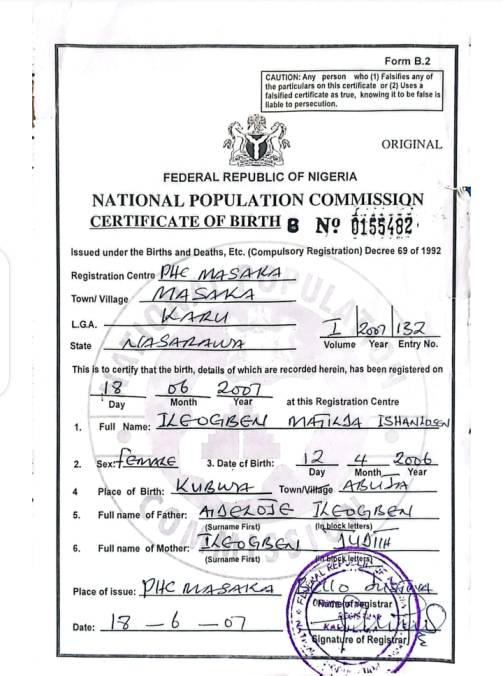 Form B.2
CAUTION: Any person who (1) Falsifies any of
the particulars on this certificate or (2) Uses a
falsified certificate as true, knowing it to be false is
liable to persecution.
ORIGINAL
FEDERAL REPUBLIC OF NIGERIA
NATIONAL POPULATION COMMISSION
CERTIFICATE OF BIRTH B Nº 0155482
Issued under the Births and Deaths, Etc. (Compulsory Registration) Decree 69 of 1992
Registration Centre PHC MASAKA
Town/Village MASAKA
L.G.A. KARU
I 2007 132
State NASARAWA Volume Year Entry No.
This is to certify that the birth, details of which are recorded herein, has been registered on
18 06 2007
Day Month Year at this Registration Centre
1. Full Name: ILEOGBEN MATILDA
2. Sex: FEMALE 3. Date of Birth: 12 4 2006
Day Month Year
4 Place of Birth: KUBWA Town/Village ABUJA
5. Full name of Father: ILEOGBEN
(Surname First) (In block letters)
6. Full name of Mother: ILEOGBEN JUDITH
(Surname First) (In block letters)
Place of issue: PHC MASAKA Bello
Name of registrar
Date: 18 - 6 - 07
Signature of Registrar